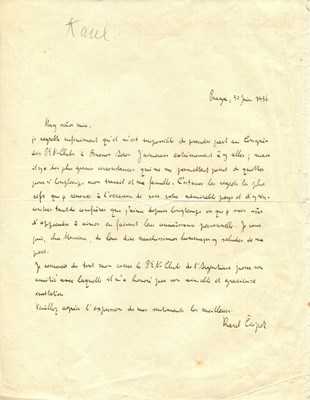 Karel
Prague, 30 juin 1936
Mon cher ami,
je regrette infiniment qu'il m'est impossible de prendre part au Congrès
des PEN-Clubs à Buenos Aires. J'aimerais extrêmement à y aller; mais
il y a des plus graves circonstances qui ne me permettent point de quitter
pour si longtemps mon travail et ma famille. C'est avec les regrets les plus
vifs que je renonce à l'occasion de voir votre admirable pays et d'y ren-
contrer tant de confrères que j'aime depuis longtemps ou que je suis sûr
d'apprendre à aimer en faisant leur connaissance personnelle. Je vous
prie, cher Monsieur, de leur dire mes hommages et saluts de ma
part.
Je remercie de tout mon coeur le P.E.N. Club de l'Argentine pour son
amitié avec laquelle il m'a honoré par son aimable et gracieuse
invitation.
Veuillez agréer l'expression de mes sentiments les meilleurs.
Karel Čapek